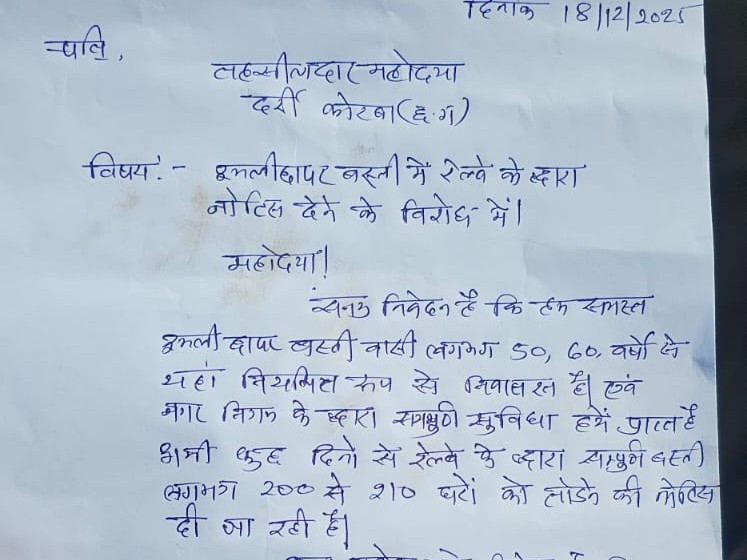 दिनांक 18/12/2025
प्रति,
तहसीलदार महोदया
दर्री कोरबा (छ.ग)
विषय:- इमलीछापर बस्ती में रेल्वे के द्वारा
नोटिस देने के विरोध में।
महोदया!
सनम्र निवेदन है कि हम समस्त
इमली छापर बस्ती वासी लगभग 50, 60, वर्षो से
यहां नियमित रूप से निवासरत है। एवं
नगर निगम के द्वारा सम्पुर्ण सुविधा हमें प्राप्त है
अभी कुछ दिनो से रेल्वे के द्वारा सम्पुर्ण बस्ती
लगभग 200 से 210 घरों को तोडने की नोटिस
दी जा रही है।